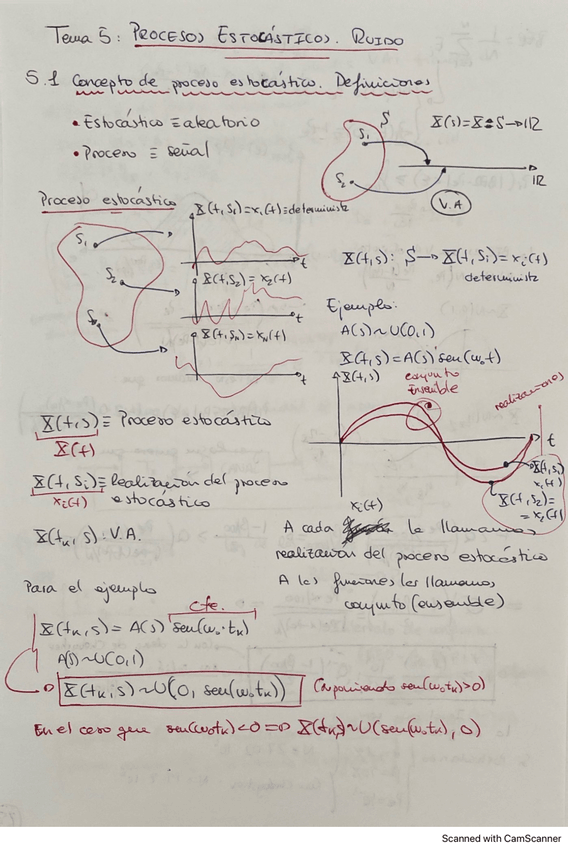 Tema 5: PROCESOS ESTOCÁSTICOS. RUIDO
5.1 Concepto de proceso estocástico. Definiciones
• Estocástico ≡ aleatorio
• Proceso ≡ señal
S
S₁
S₂
X(s)=X: S→IR
IR
V.A
Proceso estocástico
S₁
S₂
X(t,S₁)=x₁(t)≡determinista
t
X(t,S₂)=x₂(t)
t
X(t,Sₙ)=xₙ(t)
t
X(t,s): S → X(t,Sᵢ)=xᵢ(t)
determinista
Ejemplo:
A(s)~U(0,1)
X(t,s)=A(s)·sen(ω₀t)
X(t,s)
conjunto
Ensemble
realizaciones
t
X(t,S₁)
x₁(t)
X(t,S₂)=
=x₂(t)
X(t,s)≡Proceso estocástico
X(t)
X(t,Sᵢ)≡Realización del proceso
xᵢ(t) estocástico
X(tₖ,s): V.A.
xᵢ(t)
A cada le llamamos
realización del proceso estocástico
A las funciones las llamamos
conjunto (ensemble)
Para el ejemplo
cte.
X(tₖ,s)=A(s) sen(ω₀·tₖ)
A(s)~U(0,1)
X(tₖ,s)~U(0, sen(ω₀tₖ)) (suponiendo sen(ω₀tₖ)>0)
En el caso que sen(ω₀tₖ)<0 ⇒ X(tₖ)~U(sen(ω₀tₖ), 0)
Scanned with CamScanner